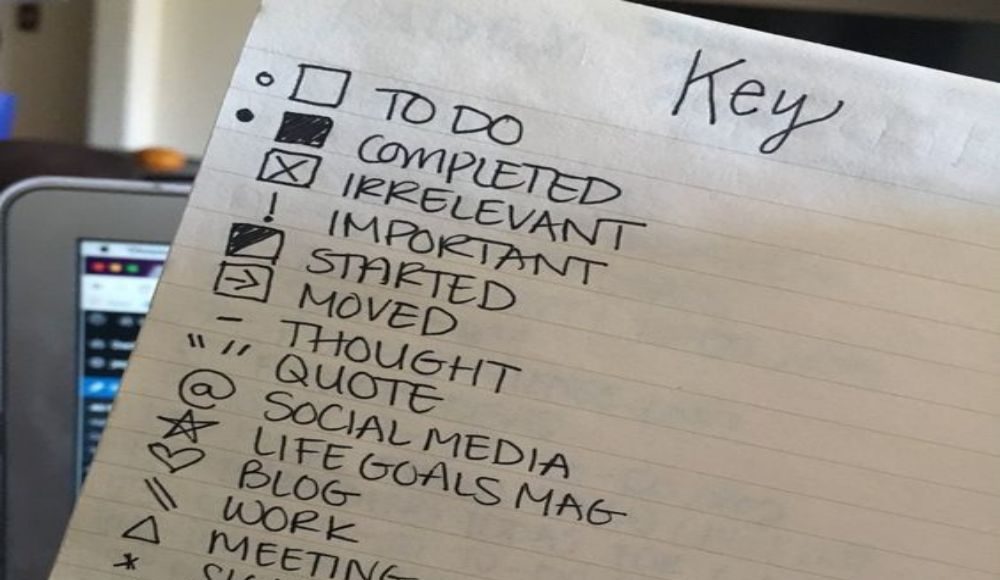 Key
TO DO
COMPLETED
IRRELEVANT
! IMPORTANT
STARTED
MOVED
- THOUGHT
" " QUOTE
@ SOCIAL MEDIA
LIFE GOALS MAG
BLOG
// WORK
MEETING
*